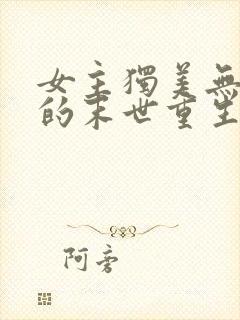 女主獨美無
的末世重生
阿旁